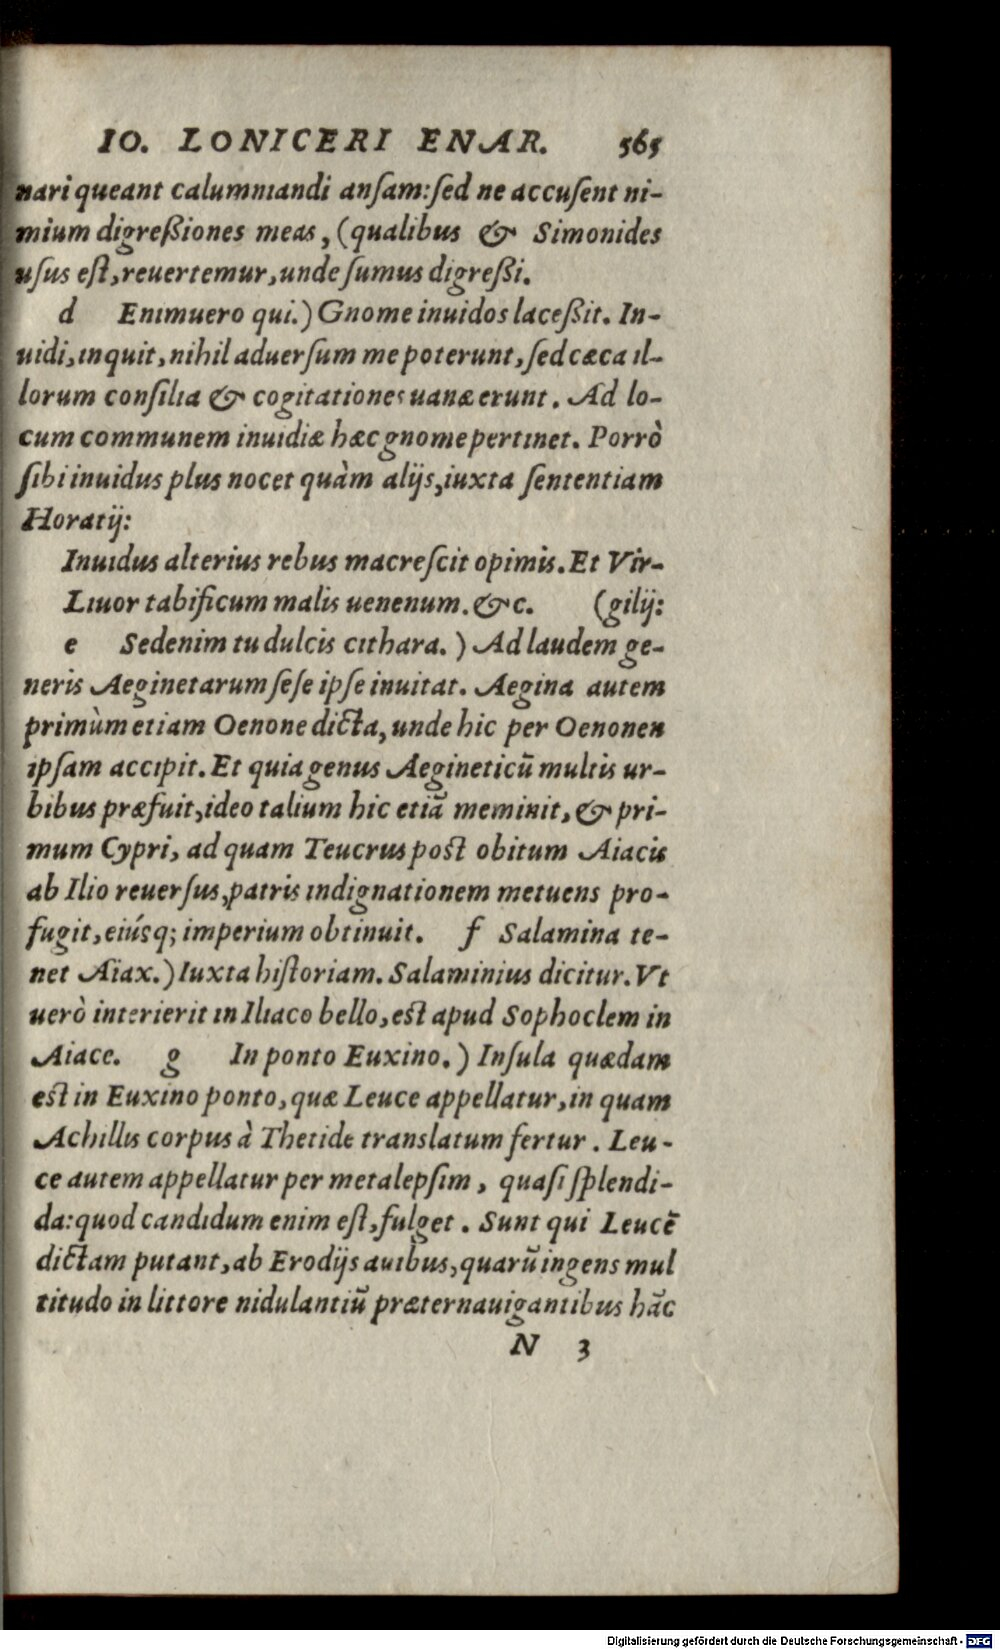 IO. LONICERI ENAR. 565
nari queant calumniandi ansam: sed ne accusent ni-
mium digreßiones meas, (qualibus & Simonides
usus est, reuertemur, unde sumus digreßi.
d Enimuero qui.) Gnome inuidos laceßit. In-
uidi, inquit, nihil aduersum me poterunt, sed cæca il-
lorum consilia & cogitationes uanæ erunt. Ad lo-
cum communem inuidiæ hæc gnome pertinet. Porrò
sibi inuidus plus nocet quàm alijs, iuxta sententiam
Horatij:
Inuidus alterius rebus macrescit opimis. Et Vir-
Liuor tabificum malis uenenum. &c. (gilij:
e Sed enim tu dulcis cithara.) Ad laudem ge-
neris Aeginetarum sese ipse inuitat. Aegina autem
primùm etiam Oenone dicta, unde hic per Oenonen
ipsam accipit. Et quia genus Aegineticū multis ur-
bibus præfuit, ideo talium hic etiā meminit, & pri-
mum Cypri, ad quam Teucrus post obitum Aiacis
ab Ilio reuersus, patris indignationem metuens pro-
fugit, eiúsq; imperium obtinuit. f Salamina te-
net Aiax.) Iuxta historiam. Salaminius dicitur. Vt
uerò interierit in Iliaco bello, est apud Sophoclem in
Aiace. g In ponto Euxino.) Insula quædam
est in Euxino ponto, quæ Leuce appellatur, in quam
Achillis corpus à Thetide translatum fertur. Leu-
ce autem appellatur per metalepsim, quasi splendi-
da: quod candidum enim est, fulget. Sunt qui Leucē
dictam putant, ab Erodijs auibus, quarū ingens mul
titudo in littore nidulantiū præternauigantibus hāc
N 3
Digitalisierung gefördert durch die Deutsche Forschungsgemeinschaft - DFG